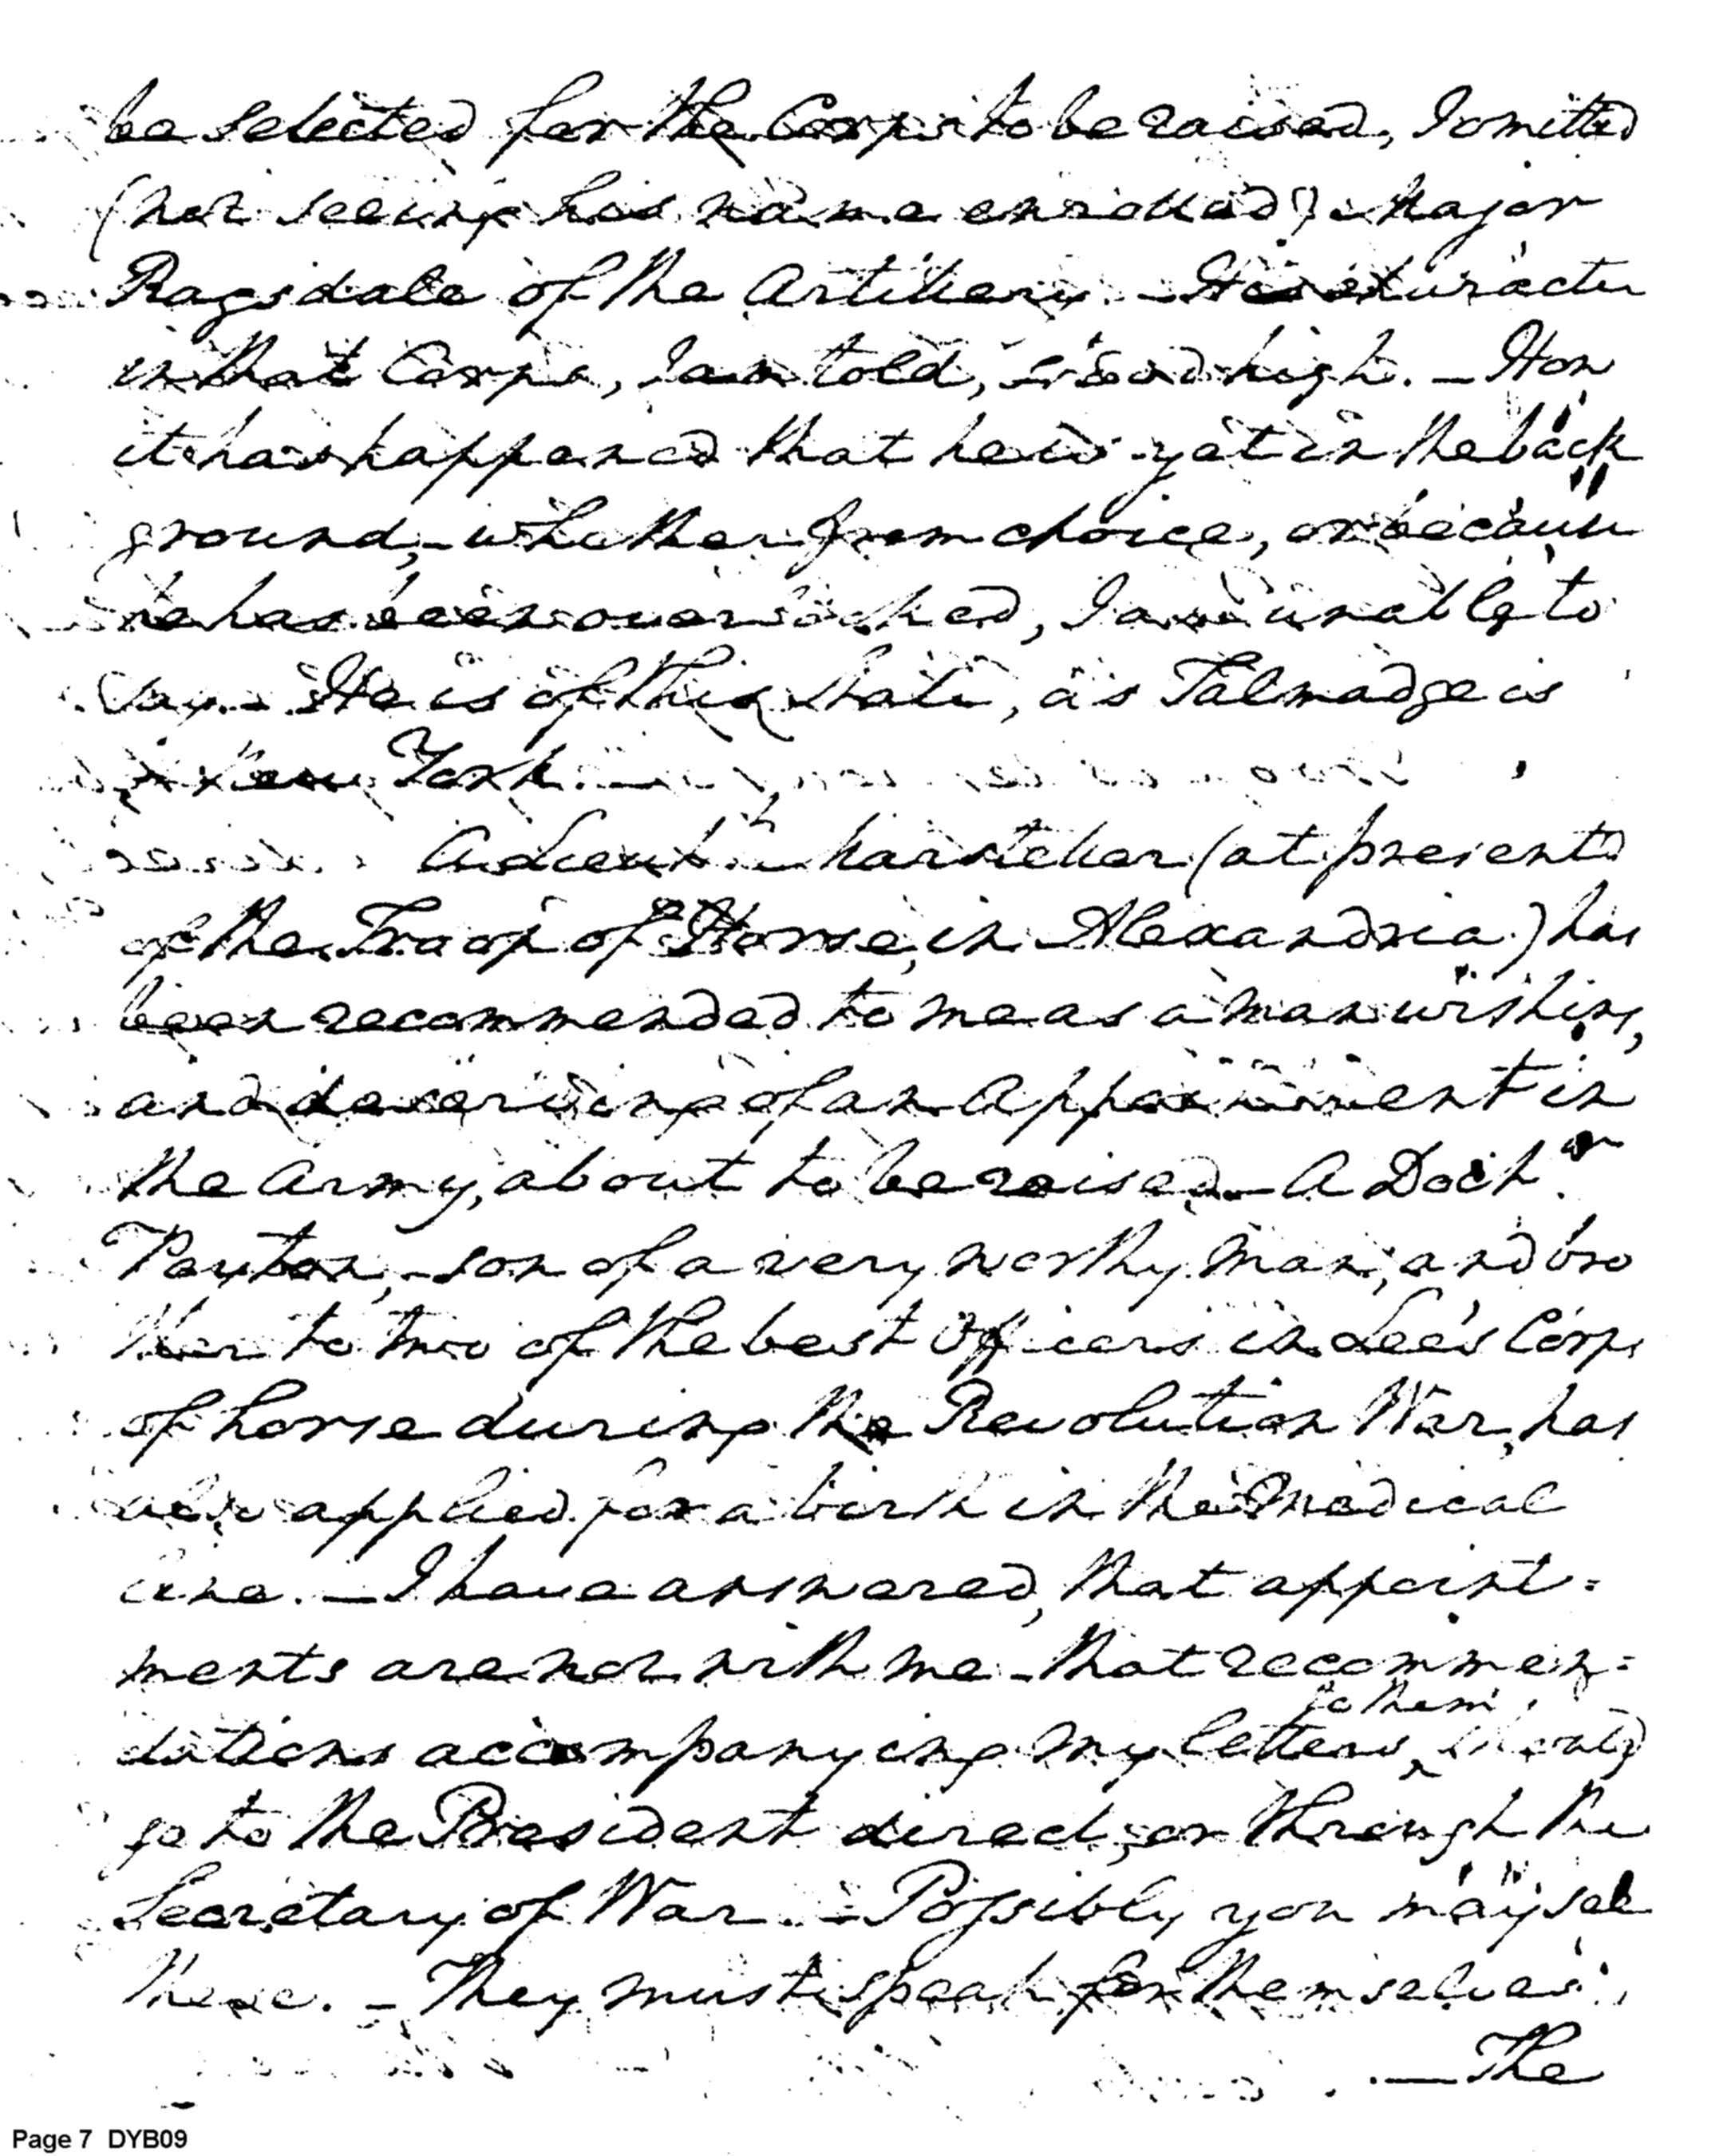 be selected for the Corps to be raised, I omitted
(not seeing his name enrolled) Major
Ragsdale of the Artillery. – His character
in that Corps, I am told, stood high. – How
it has happened that he is yet in the back
ground, – whether from choice, or because
he has been overlooked, I am unable to
say. – He is of this State, as Talmadge is
of New York. –
A Lieut. (at present
of the Troop of Horse, in Alexandria) has
been recommended to me as a man wishing,
and deserving of an Appointment in
the Army, about to be raised. – A Doctr
Payton, – son of a very worthy man, and bro
ther to two of the best Officers in Lee's Corps
of horse during the Revolution War, has
also applied for a birth in the Medical
line. – I have answered, that appoint:
ments are not with me – that recommen:
to them
dations accompanying my letters, should
go to the President direct, or through the
Secretary of War. – Possibly you may see
these. – They must speak for themselves.
– The
Page 7 DYB09